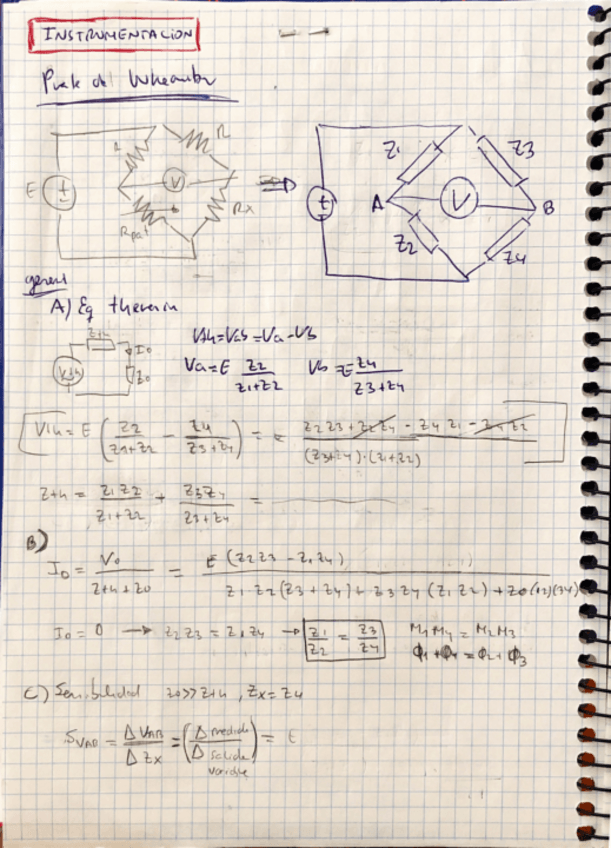 INSTRUMENTACION
Puente de Wheanston
R R
E V
Rpot Rx
Z1 Z3
A V B
Z2 Z4
general
A) Eq thevenin
Zth Io
Vth Zo
Vth = Vab = Va - Vb
Va = E Z2/(Z1+Z2) Vb = E Z4/(Z3+Z4)
Vth = E (Z2/(Z1+Z2) - Z4/(Z3+Z4)) = E (Z2Z3 + Z2Z4 - Z4Z1 - Z4Z2)/((Z3+Z4)·(Z1+Z2))
Zth = Z1Z2/(Z1+Z2) + Z3Z4/(Z3+Z4) =
B)
Io = Vo/(Zth+Zo) = E(Z2Z3 - Z1Z4)/(Z1Z2(Z3+Z4) + Z3Z4(Z1Z2) + Zo(12)(34)
Io = 0 → Z2Z3 = Z1Z4 → Z1/Z2 = Z3/Z4
M1M4 = M2M3
Φ1+Φ4 = Φ2+Φ3
C) Sensibilidad Zo>>Zth, Zx = Z4
SVAB = ΔVAB/ΔZx = (Δ medida/Δ salida variable) = E